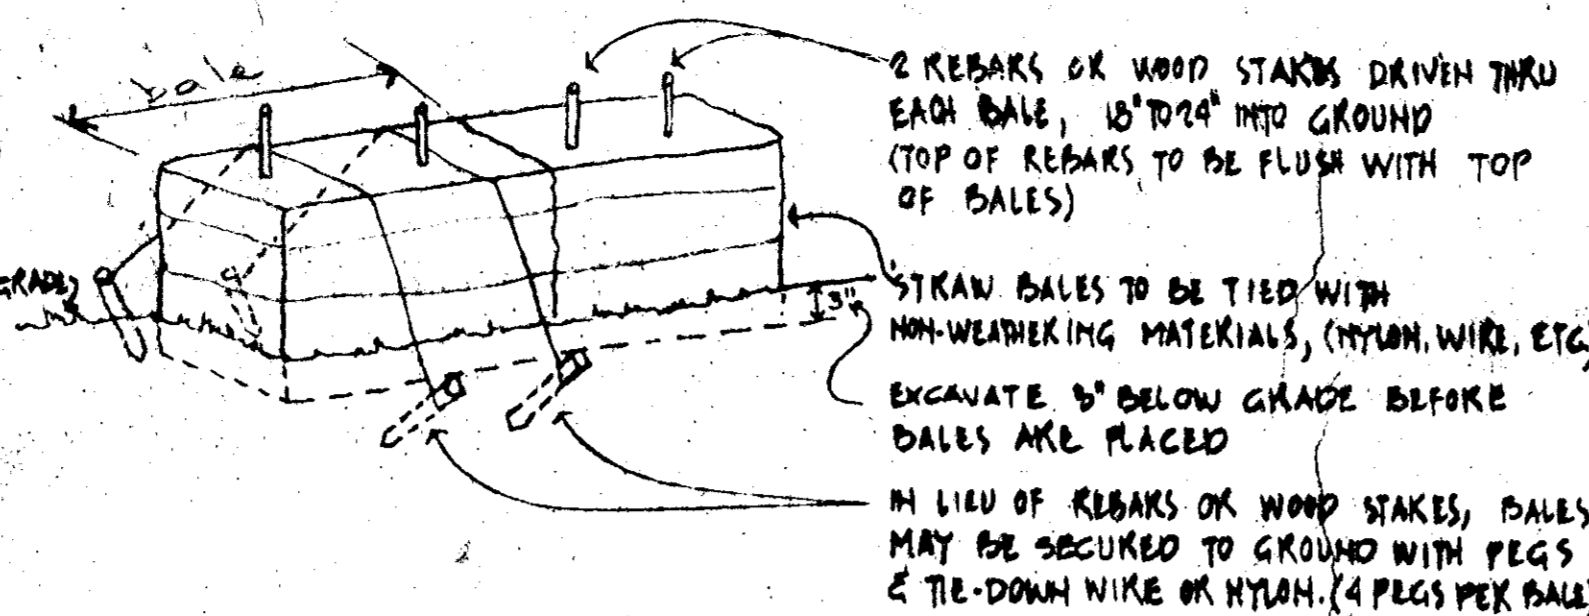 bale
2 REBARS OR WOOD STAKES DRIVEN THRU
EACH BALE, 18" TO 24" INTO GROUND
(TOP OF REBARS TO BE FLUSH WITH TOP
OF BALES)
GRADE
3"
STRAW BALES TO BE TIED WITH
NON-WEATHERING MATERIALS, (NYLON, WIRE, ETC)
EXCAVATE 3" BELOW GRADE BEFORE
BALES ARE PLACED
IN LIEU OF REBARS OR WOOD STAKES, BALES
MAY BE SECURED TO GROUND WITH PEGS
& TIE-DOWN WIRE OR NYLON. (4 PEGS PER BALE)